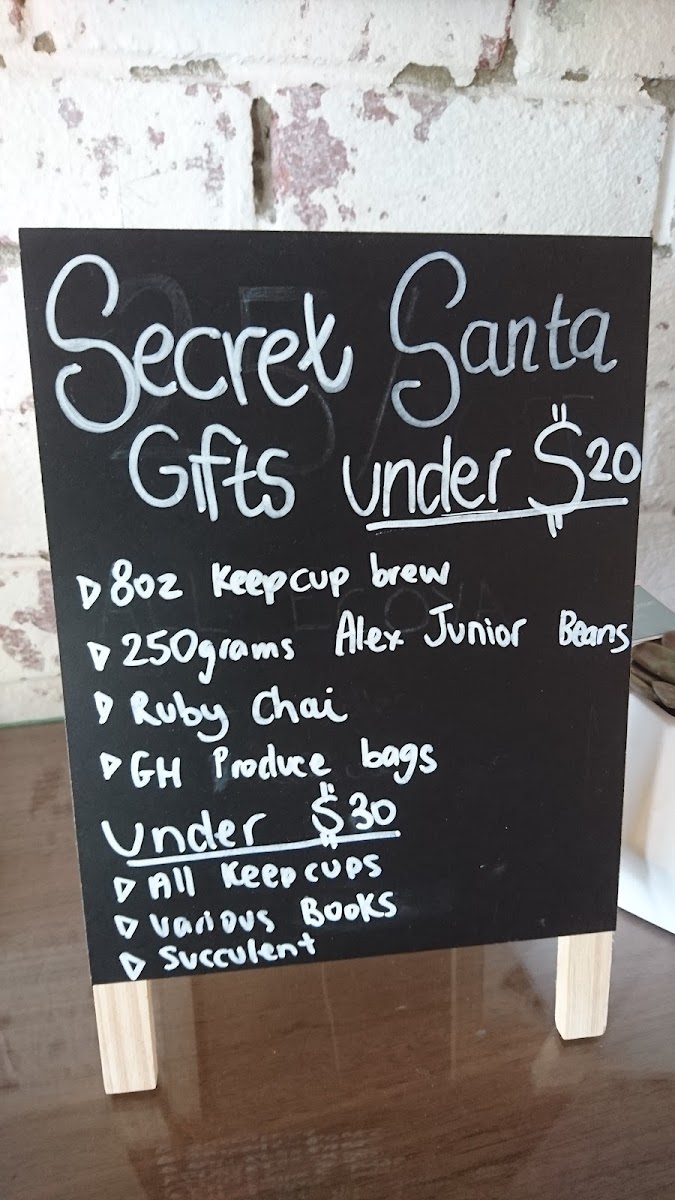 Secret Santa
Gifts under $20
8oz Keepcup brew
250grams Alex Junior Beans
Ruby Chai
GH Produce bags
Under $30
All Keepcups
Various Books
Succulent